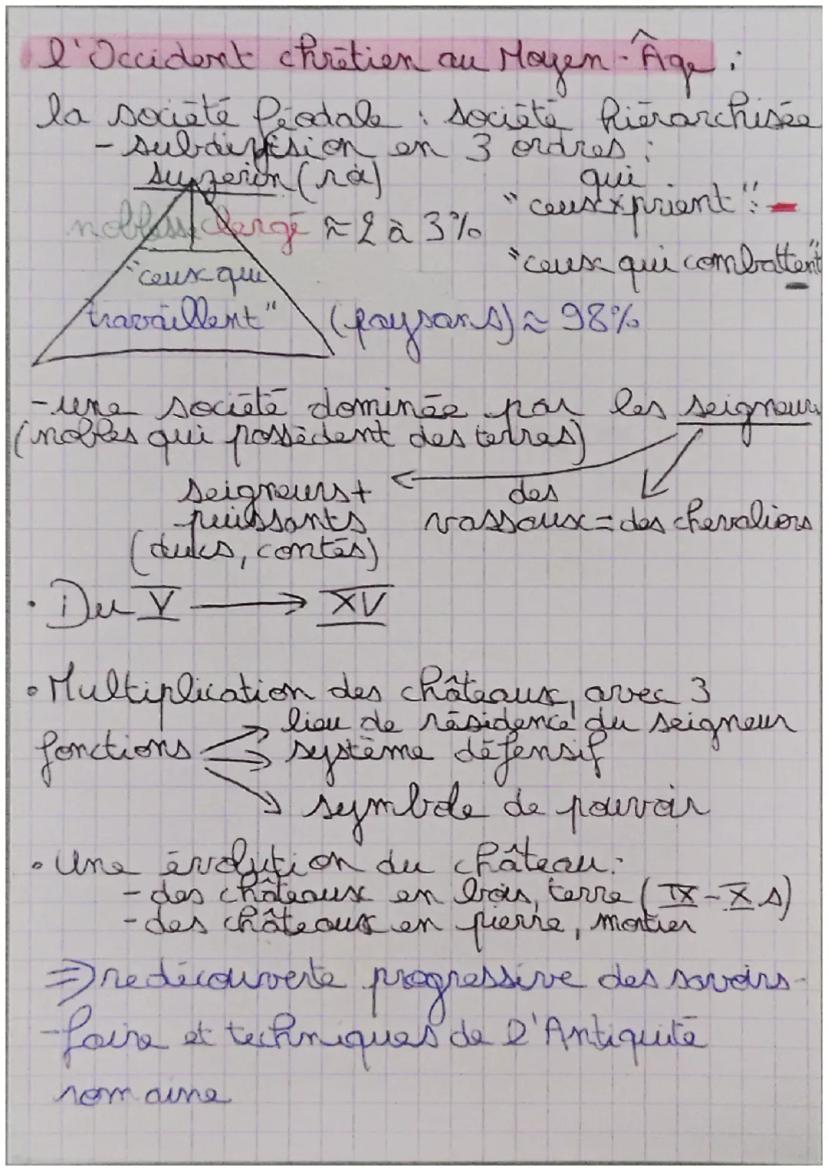 l'Occident chrétien au Moyen-Âge :
la société féodale : société hiérarchisée
- subdivision en 3 ordres :
suzerain (roi)
qui
"ceux prient" : -
noblesse clergé ≈ 2 à 3%
"ceux qui combattent"
"ceux qui
travaillent" (paysans) ≈ 98%
- une société dominée par les seigneurs
(nobles qui possèdent des terres)
seigneurs +
puissants
(ducs, contes)
des
vassaux = des chevaliers
• Du V → XV
• Multiplication des châteaux, avec 3
fonctions → lieu de résidence du seigneur
→ système défensif
→ symbole de pouvoir
• Une évolution du château :
- des châteaux en bois, terre (IX - X s)
- des châteaux en pierre, mortier
⇒ redécouverte progressive des savoirs-
-faire et techniques de l'Antiquité
romaine